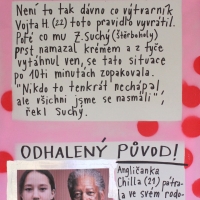 Není to tak dávno co výtvarník
Vojta H. (22) toto pravidlo vyvrátil.
Poté co mu Z. Suchý (Štěrboholy)
prst namazal krémem a z tyče
vytáhnul ven, se tato situace
po 10ti minutách zopakovala.
"Nikdo to tenkrát nechápal
ale všichni jsme se nasmáli",
řekl Suchý.
ODHALENÝ PŮVOD!
Angličanka
Chilla (21) pátra-
la ve svém rodo-